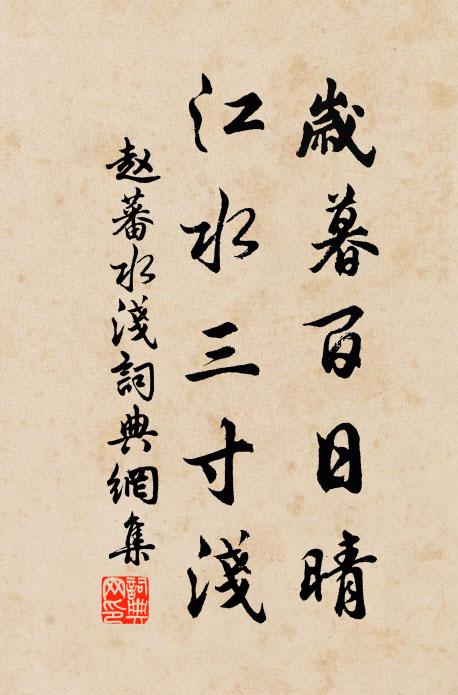 歲暮百日晴
江水三寸淺
赵蕃水淺詞典網集
詞典網印